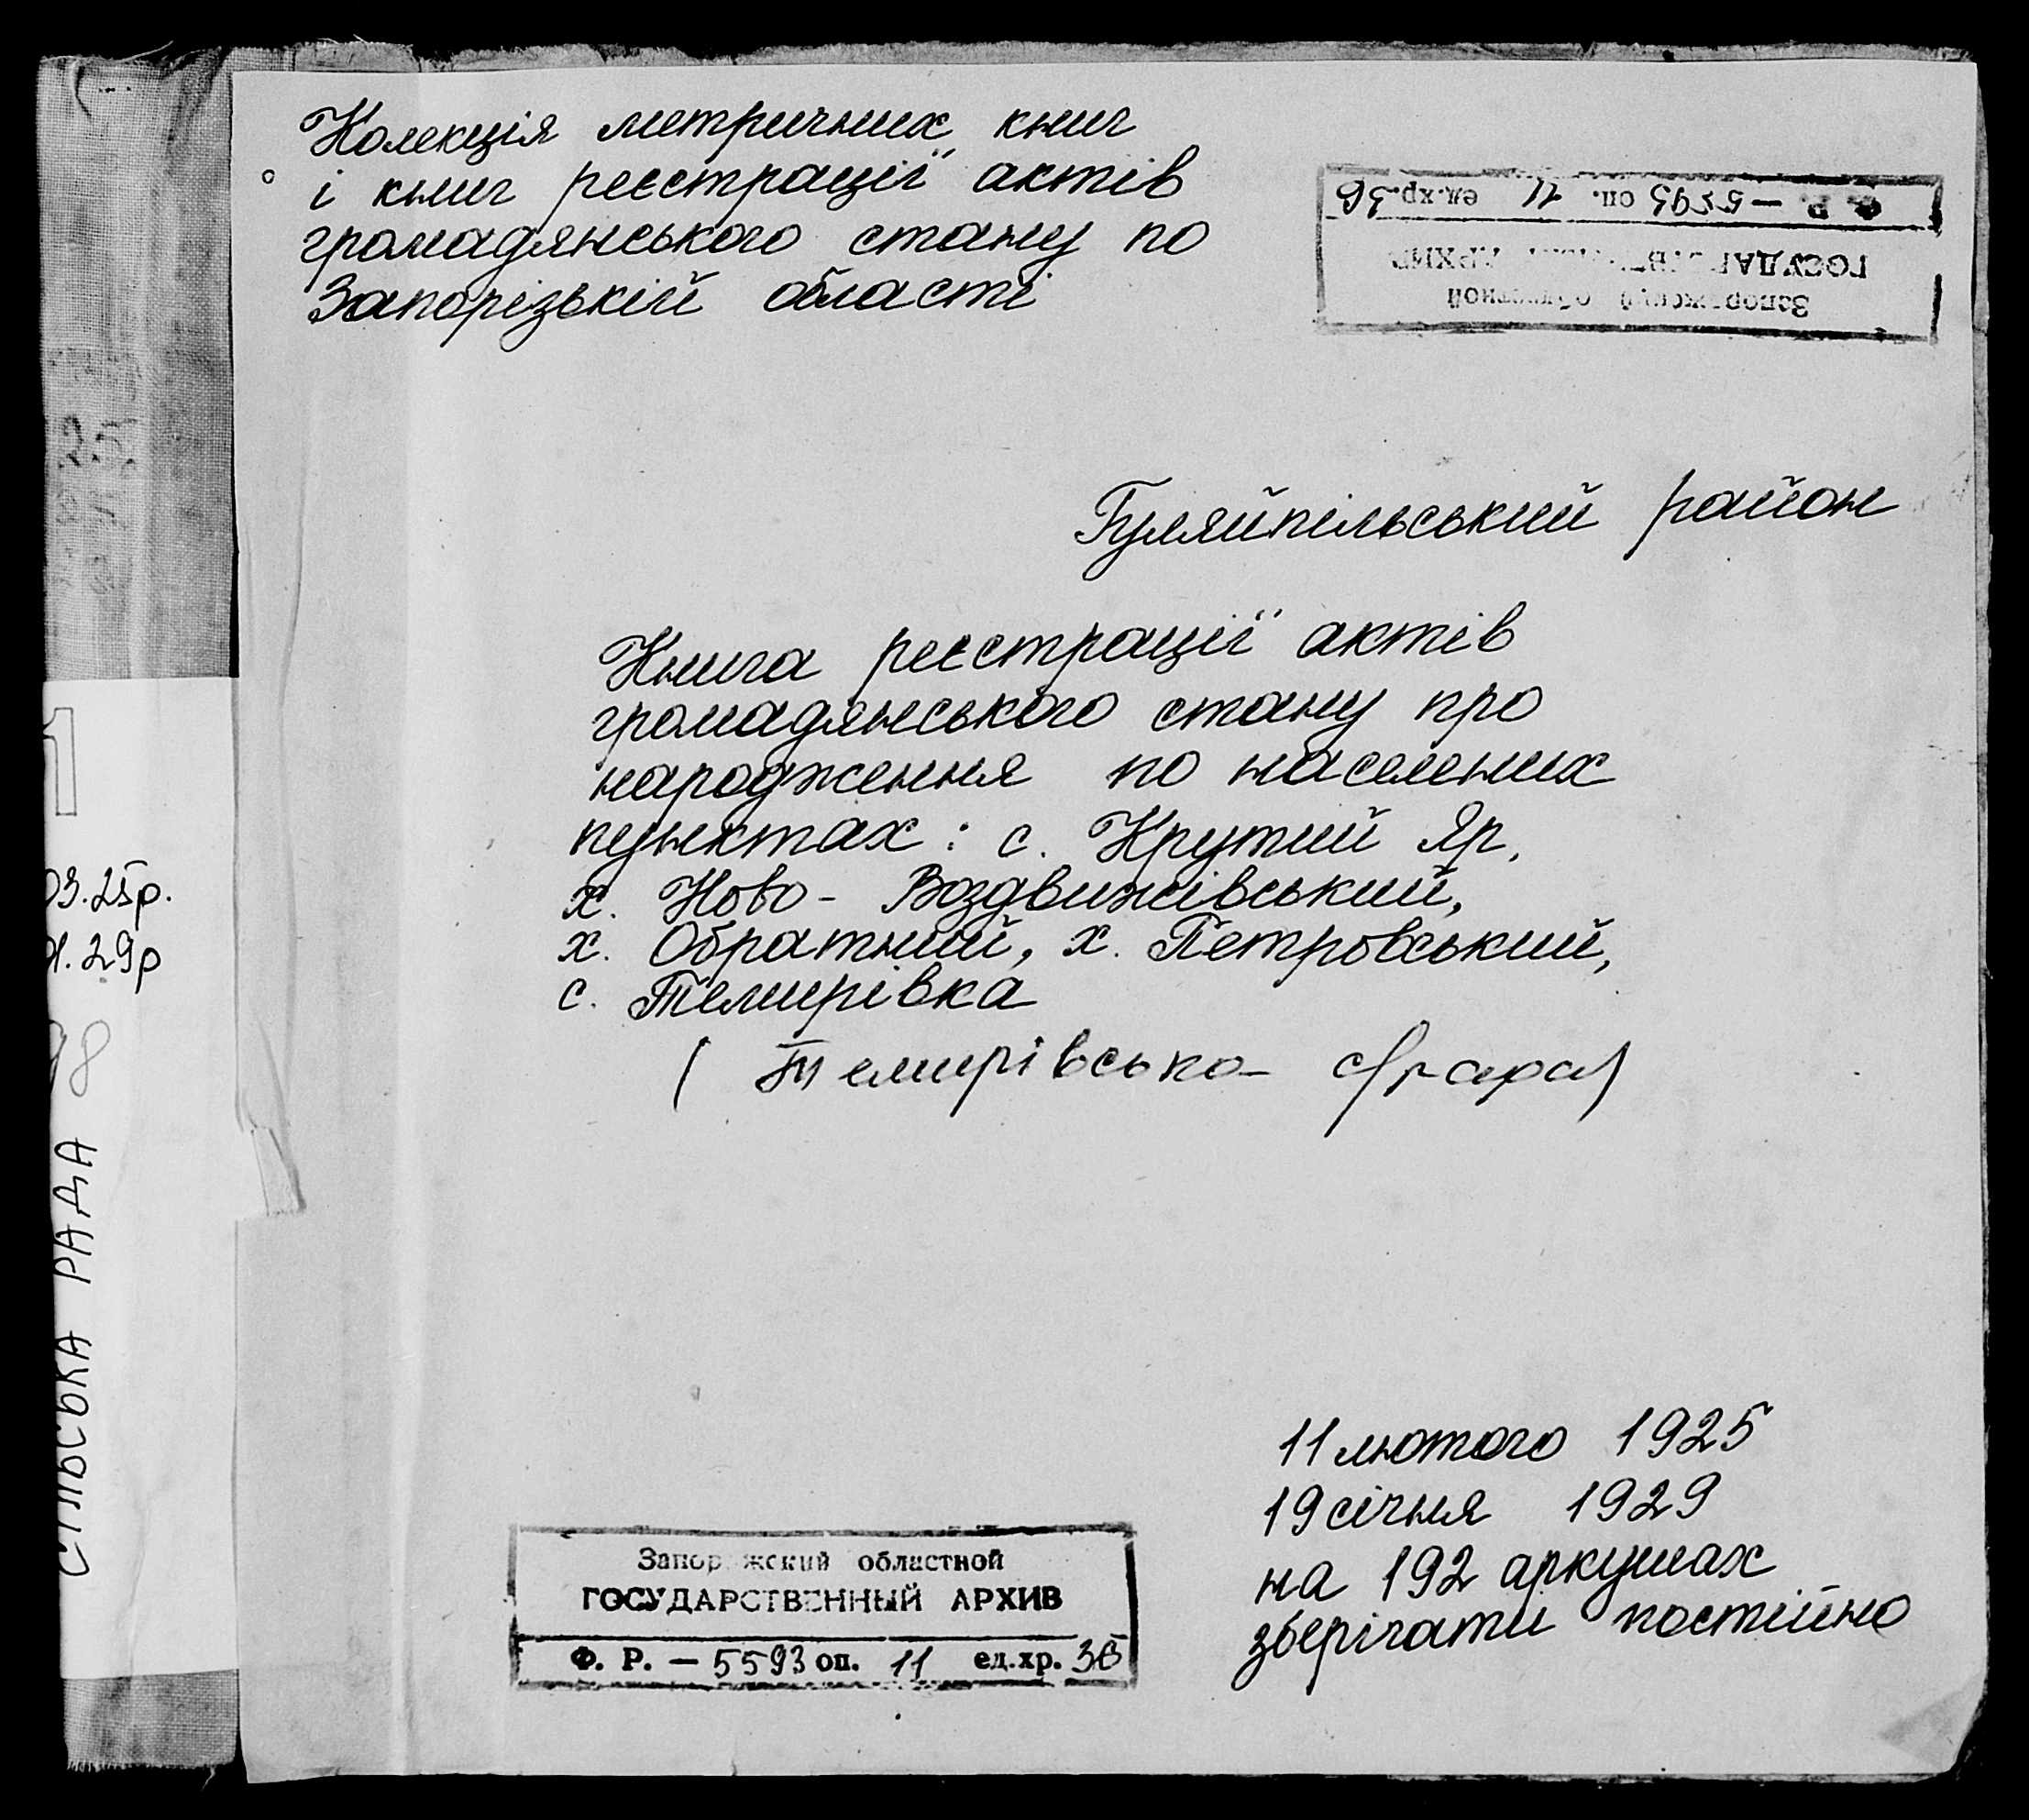 Колекція метричних книг
і книг реєстрації актів
громадянського стану по
Запорізькій області
Ф. Р. — 5593 оп. 11 ед.хр. 36
ГОСУДАРСТВЕННЫЙ АРХИВ
Запорожский областной
Гуляйпільський район
Книга реєстрації актів
громадянського стану про
народження по населених
пунктах: с. Крутий Яр,
х. Ново-Воздвижівський,
х. Обратний, х. Петровський,
с. Темирівка
(Темирівська с/рада)
1
03.25р.
01.29р
98
СІЛЬСЬКА РАДА
11 лютого 1925
19 січня 1929
на 192 аркушах
зберігати постійно
Запорожский областной
ГОСУДАРСТВЕННЫЙ АРХИВ
Ф. Р. — 5593 оп. 11 ед.хр. 36